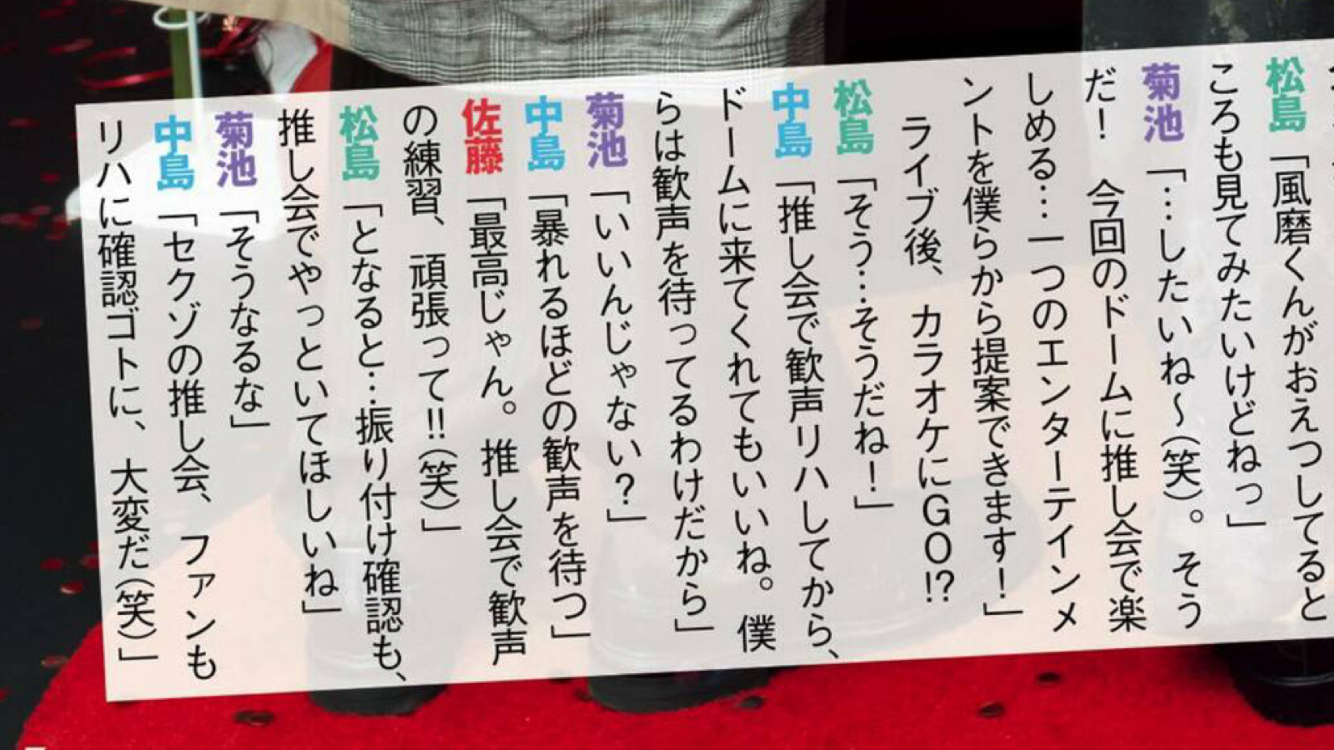 松島「風磨くんがおえつしてると
ころも見てみたいけどねっ」
菊池「…したいね～(笑)。そう
だ！　今回のドームに推し会で楽
しめる…一つのエンターテインメ
ントを僕らから提案できます！」
ライブ後、カラオケにGO!?
松島「そう…そうだね！」
中島「推し会で歓声リハしてから、
ドームに来てくれてもいいね。僕
らは歓声を待ってるわけだから」
菊池「いいんじゃない？」
中島「暴れるほどの歓声を待つ」
佐藤「最高じゃん。推し会で歓声
の練習、頑張って!!(笑)」
松島「となると…振り付け確認も、
推し会でやっといてほしいね」
菊池「そうなるな」
中島「セクゾの推し会、ファンも
リハに確認ゴトに、大変だ(笑)」